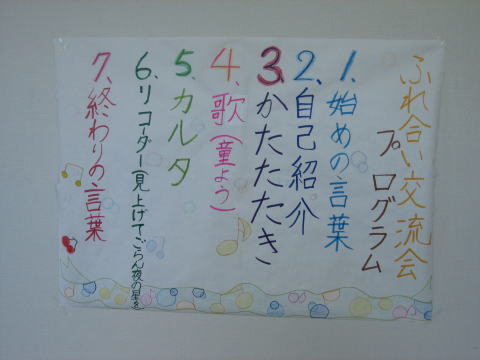 ふれ合い交流会
プログラム
1、始めの言葉
2、自己紹介
3、かたたたき
4、歌(童よう)
5、カルタ
6、リコーダー(見上げてごらん夜の星を)
7、終わりの言葉